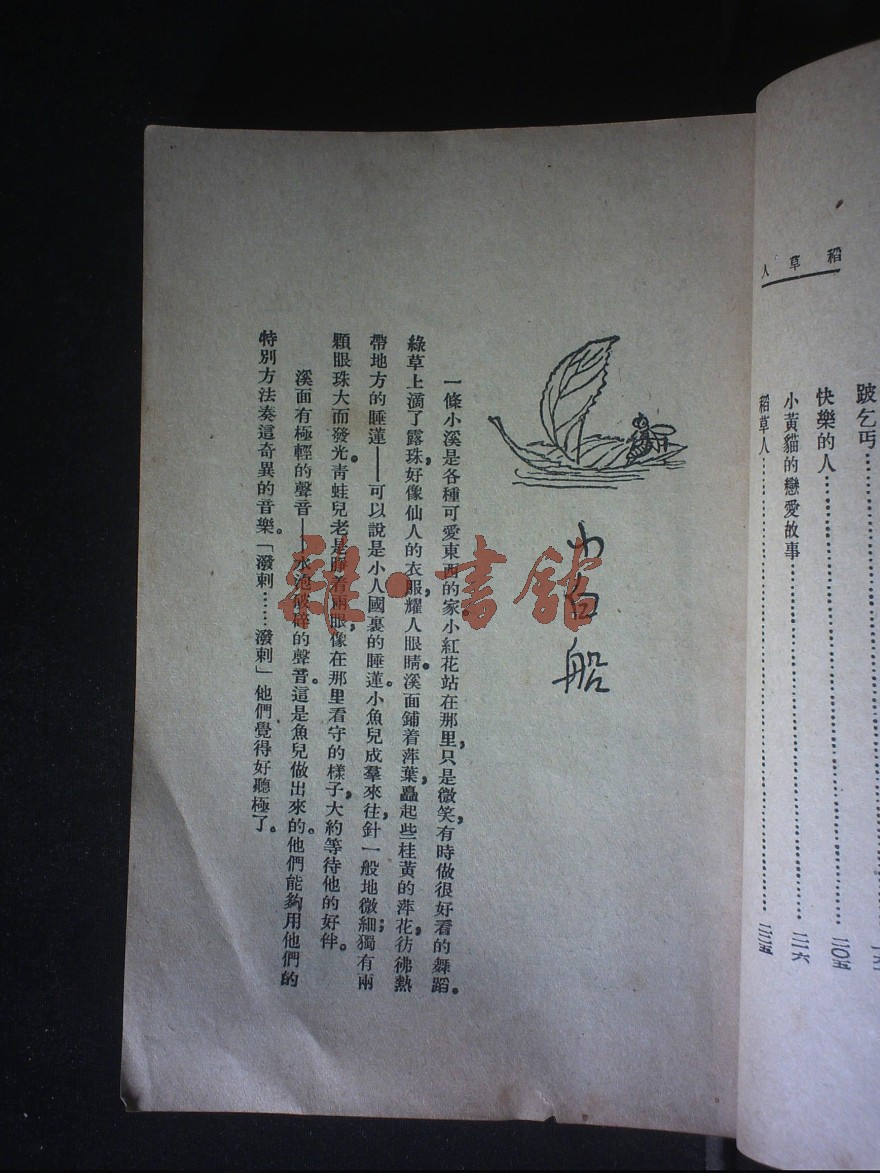 稻草人
跛乞丐
快樂的人……二〇五
小黃貓的戀愛故事……二一六
稻草人……二二五
小白船
一條小溪是各種可愛東西的家。小紅花站在那里，只是微笑，有時做很好看的舞蹈。
綠草上滴了露珠，好像仙人的衣服，耀人眼睛。溪面鋪着萍葉，矗起些桂黃的萍花，彷彿熱
帶地方的睡蓮——可以說是小人國裏的睡蓮。小魚兒成羣來往，針一般地微細；獨有兩
顆眼珠大而發光。青蛙兒老是睜着兩眼，像在那里看守的樣子，大約等待他的好伴。
溪面有極輕的聲音——水泡破碎的聲音。這是魚兒做出來的。他們能夠用他們的
特別方法奏這奇異的音樂。「潑剌……潑剌」他們覺得好聽極了。
雜·書館